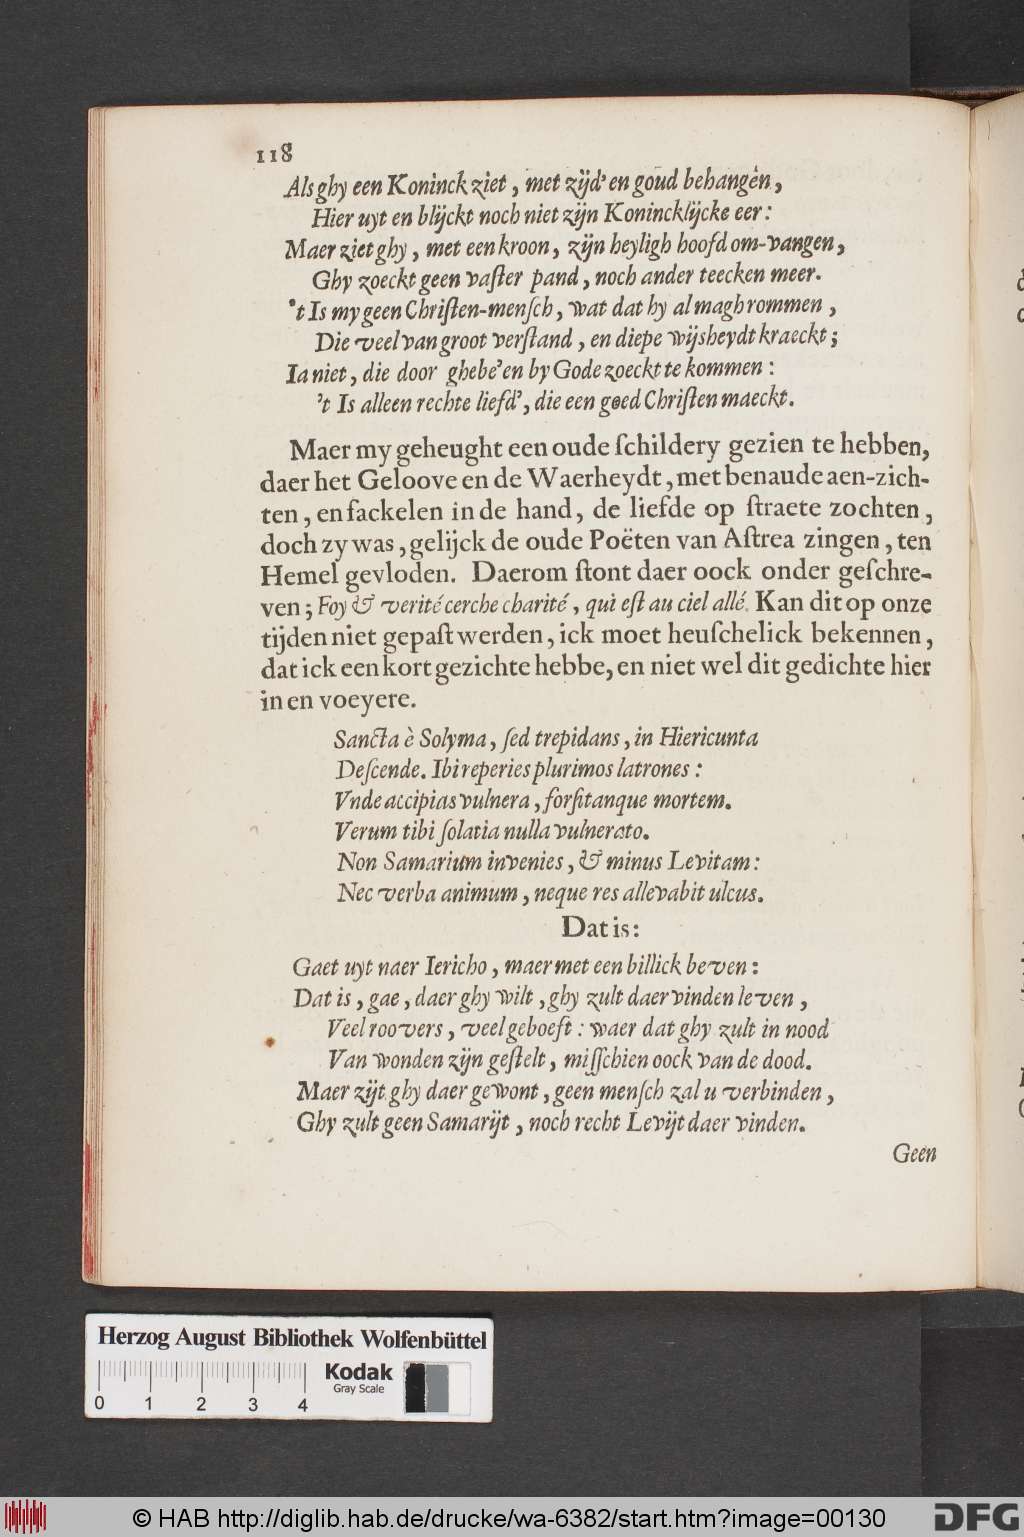 118
Als ghy een Koninck ziet, met zijd' en goud behangen,
Hier uyt en blijckt noch niet zijn Konincklijcke eer:
Maer ziet ghy, met een kroon, zijn heyligh hoofd om-vangen,
Ghy zoeckt geen vaſter pand, noch ander teecken meer.
't Is my geen Chriſten-menſch, wat dat hy al magh rommen,
Die veel van groot verſtand, en diepe wijsheydt kraeckt;
Ia niet, die door ghebe'en by Gode zoeckt te kommen:
't Is alleen rechte liefd', die een goed Chriſten maeckt.
Maer my geheught een oude ſchildery gezien te hebben,
daer het Geloove en de Waerheydt, met benaude aen-zich-
ten, en fackelen in de hand, de liefde op ſtraete zochten,
doch zy was, gelijck de oude Poëten van Aſtrea zingen, ten
Hemel gevloden. Daerom ſtont daer oock onder geſchre-
ven; Foy & verité cerche charité, qui eſt au ciel allé. Kan dit op onze
tijden niet gepaſt werden, ick moet heuſchelick bekennen,
dat ick een kort gezichte hebbe, en niet wel dit gedichte hier
in en voeyere.
Sancta è Solyma, ſed trepidans, in Hiericunta
Deſcende. Ibi reperies plurimos latrones:
Vnde accipias vulnera, forſitanque mortem.
Verum tibi ſolatia nulla vulnerato.
Non Samarium invenies, & minus Levitam:
Nec verba animum, neque res allevabit ulcus.
Dat is:
Gaet uyt naer Iericho, maer met een billick beven:
Dat is, gae, daer ghy wilt, ghy zult daer vinden leven,
Veel roovers, veel geboeft: waer dat ghy zult in nood
Van wonden zijn geſtelt, miſſchien oock van de dood.
Maer zijt ghy daer gewont, geen menſch zal u verbinden,
Ghy zult geen Samarijt, noch recht Levijt daer vinden.
Geen
Herzog August Bibliothek Wolfenbüttel
Kodak
Gray Scale
0 1 2 3 4
© HAB http://diglib.hab.de/drucke/wa-6382/start.htm?image=00130
DFG